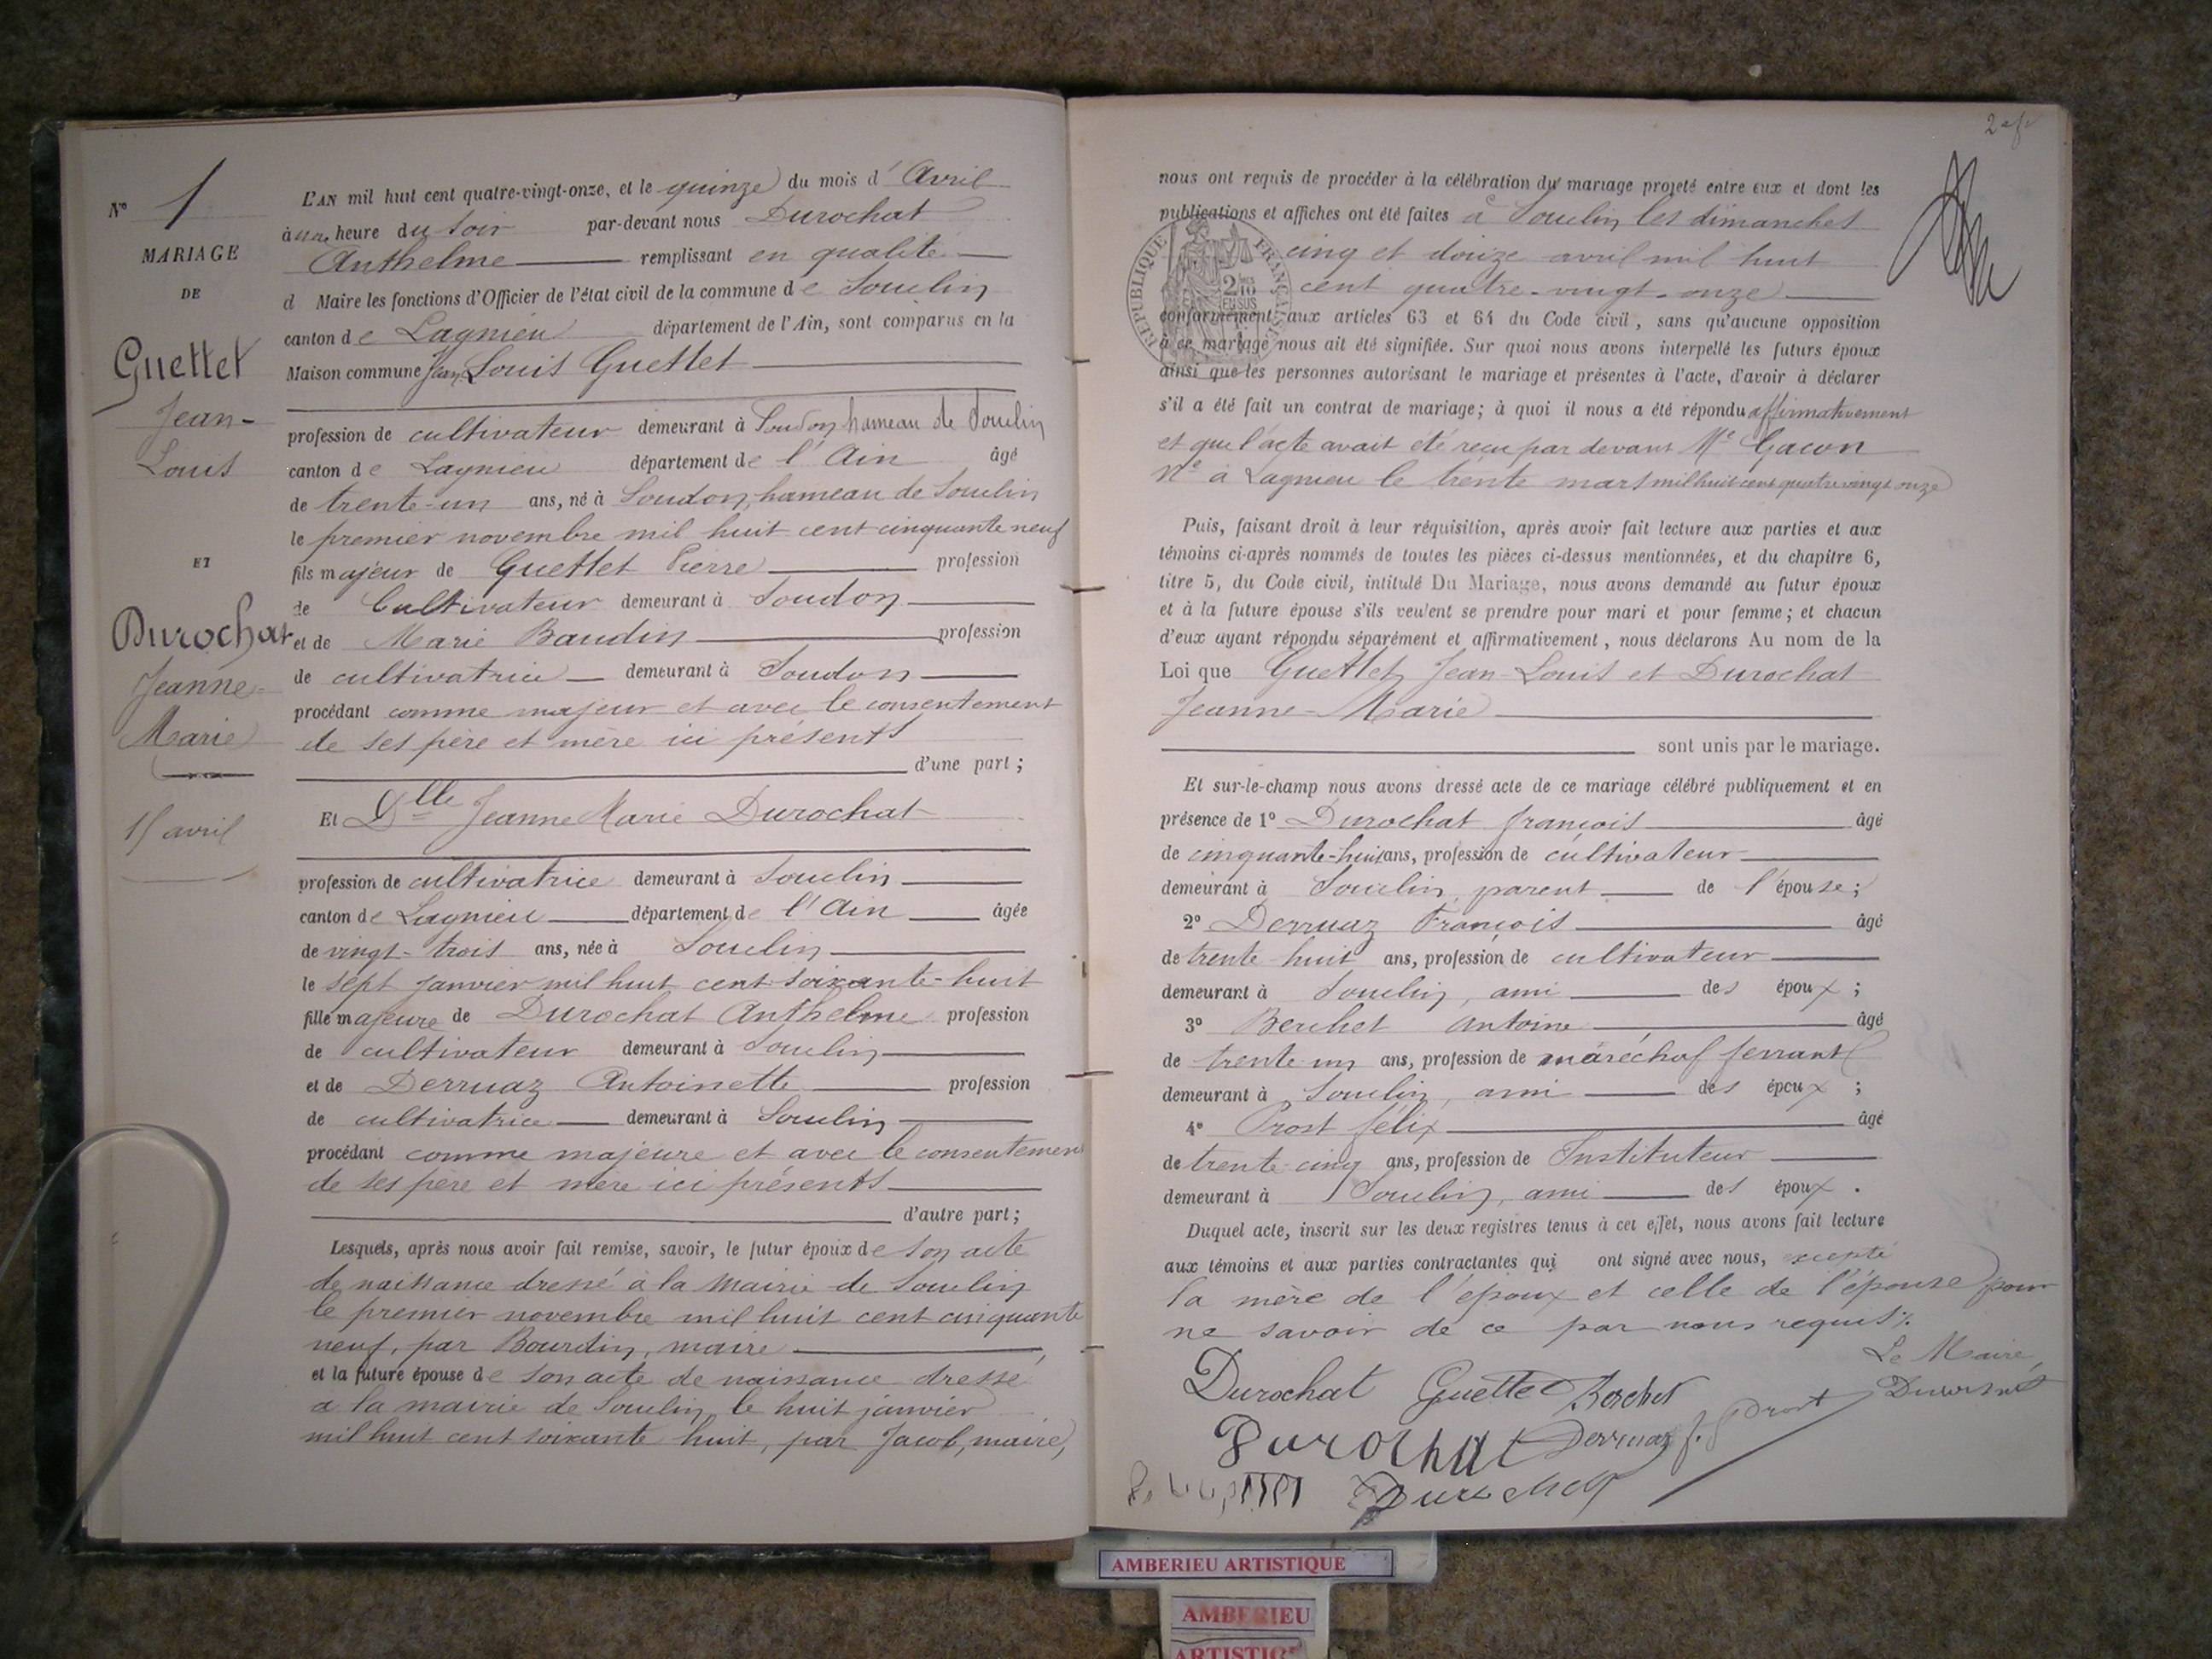 N° 1
MARIAGE
DE
Guettet
Jean-
Louis
ET
Durochat
Jeanne-
Marie
15 avril
L'AN mil huit cent quatre-vingt-onze, et le quinze du mois d'Avril
à une heure du soir par-devant nous Durochat
Anthelme remplissant en qualité
d Maire les fonctions d'Officier de l'état civil de la commune de Souclin
canton de Lagnieu département de l'Ain, sont comparus en la
Maison commune Jean Louis Guettet
profession de cultivateur demeurant à Soudon hameau de Souclin
canton de Lagnieu département de l'Ain âgé
de trente-un ans, né à Soudon, hameau de Souclin
le premier novembre mil huit cent cinquante neuf
fils majeur de Guettet Pierre profession
de Cultivateur demeurant à Soudon
et de Marie Baudin profession
de cultivatrice demeurant à Soudon
procédant comme majeur et avec le consentement
de ses père et mère ici présents
d'une part ;
Et Dlle Jeanne Marie Durochat
profession de cultivatrice demeurant à Souclin
canton de Lagnieu département de l'Ain âgée
de vingt-trois ans, née à Souclin
le sept janvier mil huit cent soixante-huit
fille majeure de Durochat Anthelme profession
de cultivateur demeurant à Souclin
et de Derruaz Antoinette profession
de cultivatrice demeurant à Souclin
procédant comme majeure et avec le consentement
de ses père et mère ici présents
d'autre part ;
Lesquels, après nous avoir fait remise, savoir, le futur époux de son acte
de naissance dressé à la mairie de Souclin
le premier novembre mil huit cent cinquante
neuf, par Bourdin, maire,
et la future épouse de son acte de naissance dressé
a la mairie de Souclin le huit janvier
mil huit cent soixante huit, par Jacob, maire,
nous ont requis de procéder à la célébration du mariage projeté entre eux et dont les
publications et affiches ont été faites à Souclin les dimanches
cinq et douze avril mil huit
cent quatre-vingt-onze
RÉPUBLIQUE FRANÇAISE
2/10 EN SUS
conformément aux articles 63 et 64 du Code civil, sans qu'aucune opposition
à ce mariage nous ait été signifiée. Sur quoi nous avons interpellé les futurs époux
ainsi que les personnes autorisant le mariage et présentes à l'acte, d'avoir à déclarer
s'il a été fait un contrat de mariage ; à quoi il nous a été répondu affirmativement
et que l'acte avait été reçu par devant Me Gacon
Ne à Lagnieu le trente mars mil huit cent quatre vingt onze
Puis, faisant droit à leur réquisition, après avoir fait lecture aux parties et aux
témoins ci-après nommés de toutes les pièces ci-dessus mentionnées, et du chapitre 6,
titre 5, du Code civil, intitulé Du Mariage, nous avons demandé au futur époux
et à la future épouse s'ils veulent se prendre pour mari et pour femme ; et chacun
d'eux ayant répondu séparément et affirmativement, nous déclarons Au nom de la
Loi que Guettet, Jean-Louis et Durochat
Jeanne-Marie
sont unis par le mariage.
Et sur-le-champ nous avons dressé acte de ce mariage célébré publiquement et en
présence de 1° Durochat françois âgé
de cinquante-huit ans, profession de cultivateur
demeurant à Souclin, parent de l'épouse ;
2° Derruaz François âgé
de trente-huit ans, profession de cultivateur
demeurant à Souclin, ami des époux ;
3° Berchet Antoine âgé
de trente-un ans, profession de maréchal ferrant
demeurant à Souclin, ami des époux ;
4° Prost félix âgé
de trente-cinq ans, profession de Instituteur
demeurant à Souclin, ami des époux.
Duquel acte, inscrit sur les deux registres tenus à cet effet, nous avons fait lecture
aux témoins et aux parties contractantes qui ont signé avec nous, excepté
la mère de l'époux et celle de l'épouse pour
ne savoir de ce par nous requis.
Le Maire,
Durochat Guettet Berchet Durochat
Durochat Derruaz f. Prost
Durochat
AMBERIEU ARTISTIQUE
AMBERIEU
ARTISTIQUE